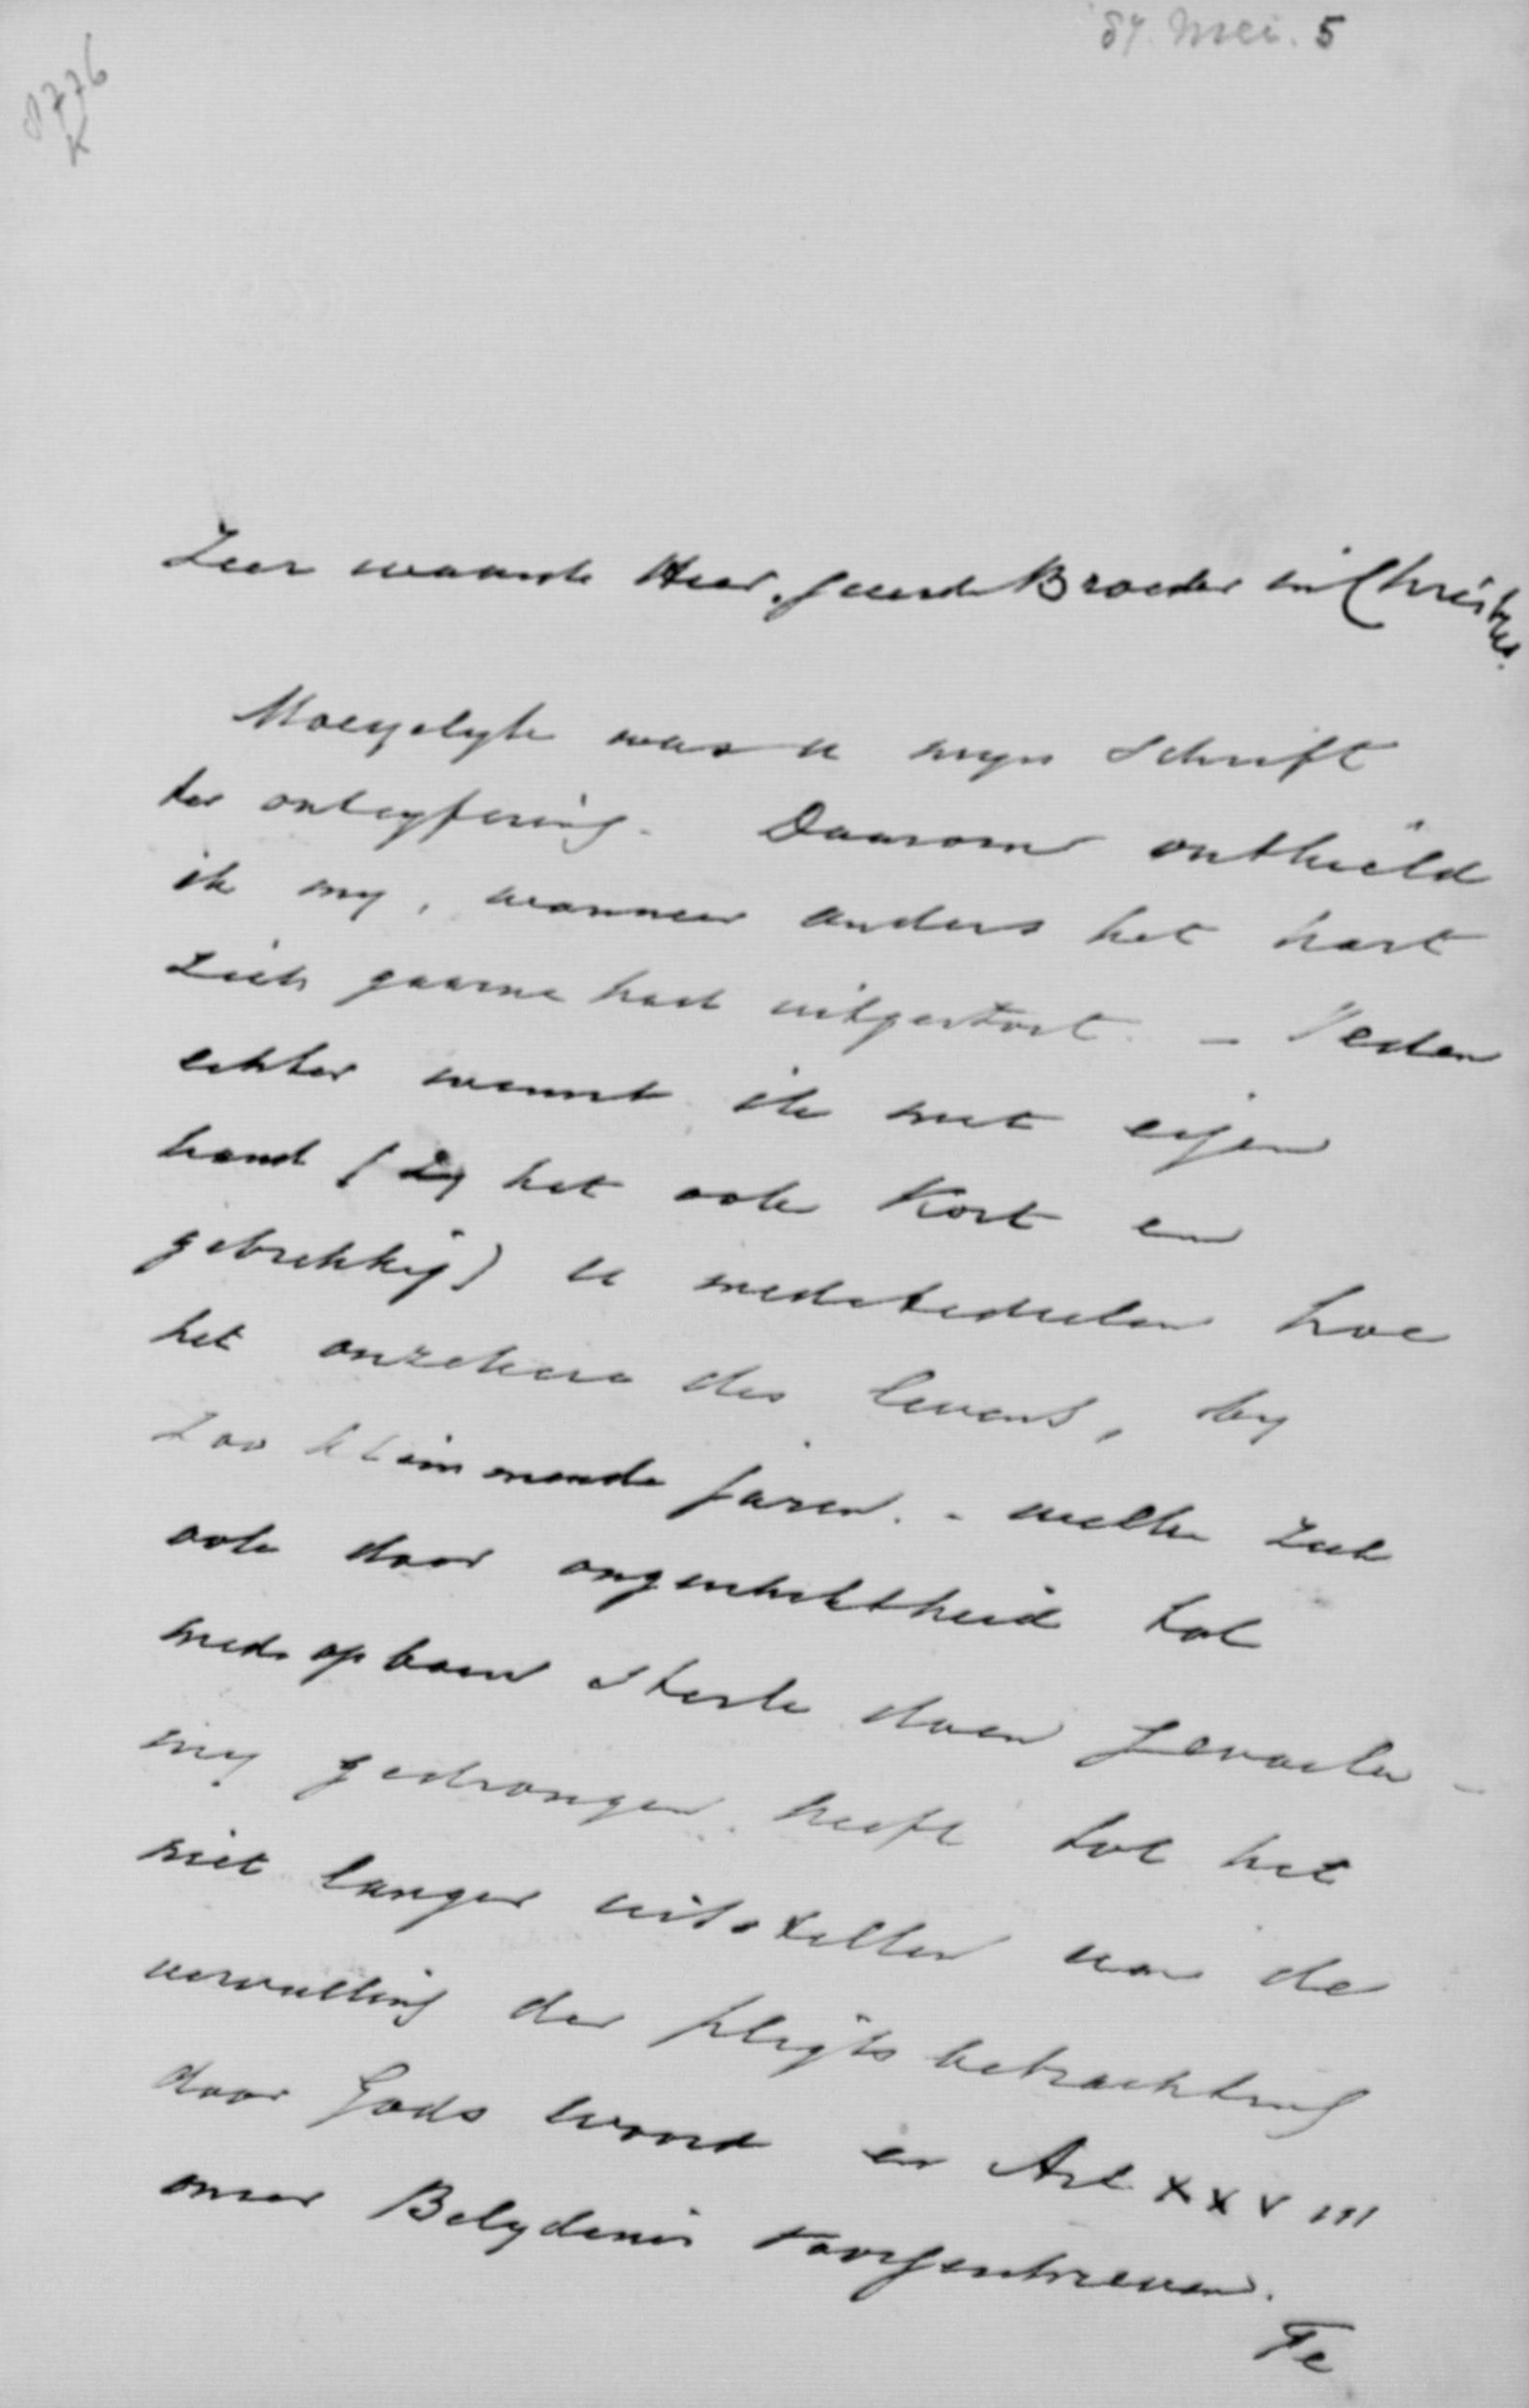 '87. Mei. 5
1776
K
Zeer waarde Heer, geeerde Broeder in Christus.
Moeyelyk was u myn schrift
ter ontcyfering. Daarom onthield
ik my, wanneer anders het hart
zich gaarne had uitgestort. – Heden
echter wenscht ik met eigen
hand (zy het ook kort en
gebrekkig) u mededeelen hoe
het onzekere des levens, by
zoo klimmende jaren. - welke zich
ook door ongeschiktheid tot
mede opbouw sterk doen gevoelen -
my gedrongen heeft tot het
niet langer uitstellen van de
vervulling der pligtsbetrachting
door Gods woord en Art XXVIII
onzer Belydenis voorgeschreven.
Te